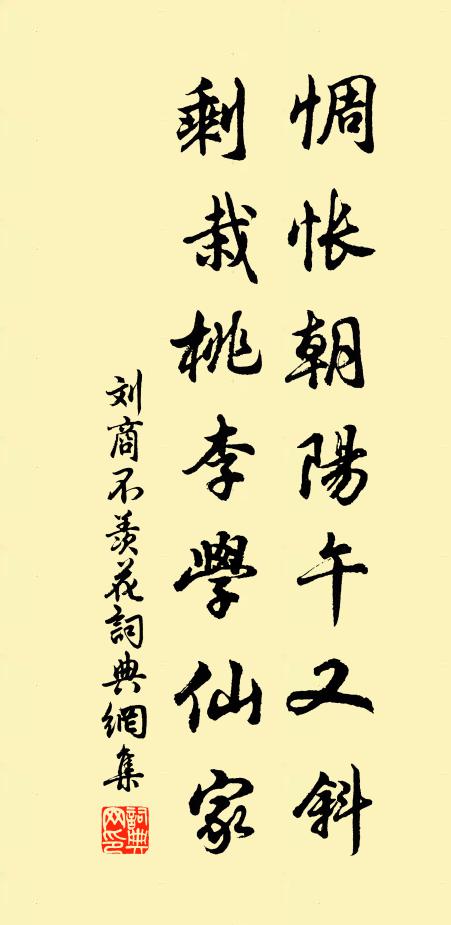 惆怅朝陽午又斜
剩栽桃李學仙家
刘商不羡花詞典網集
詞典网印